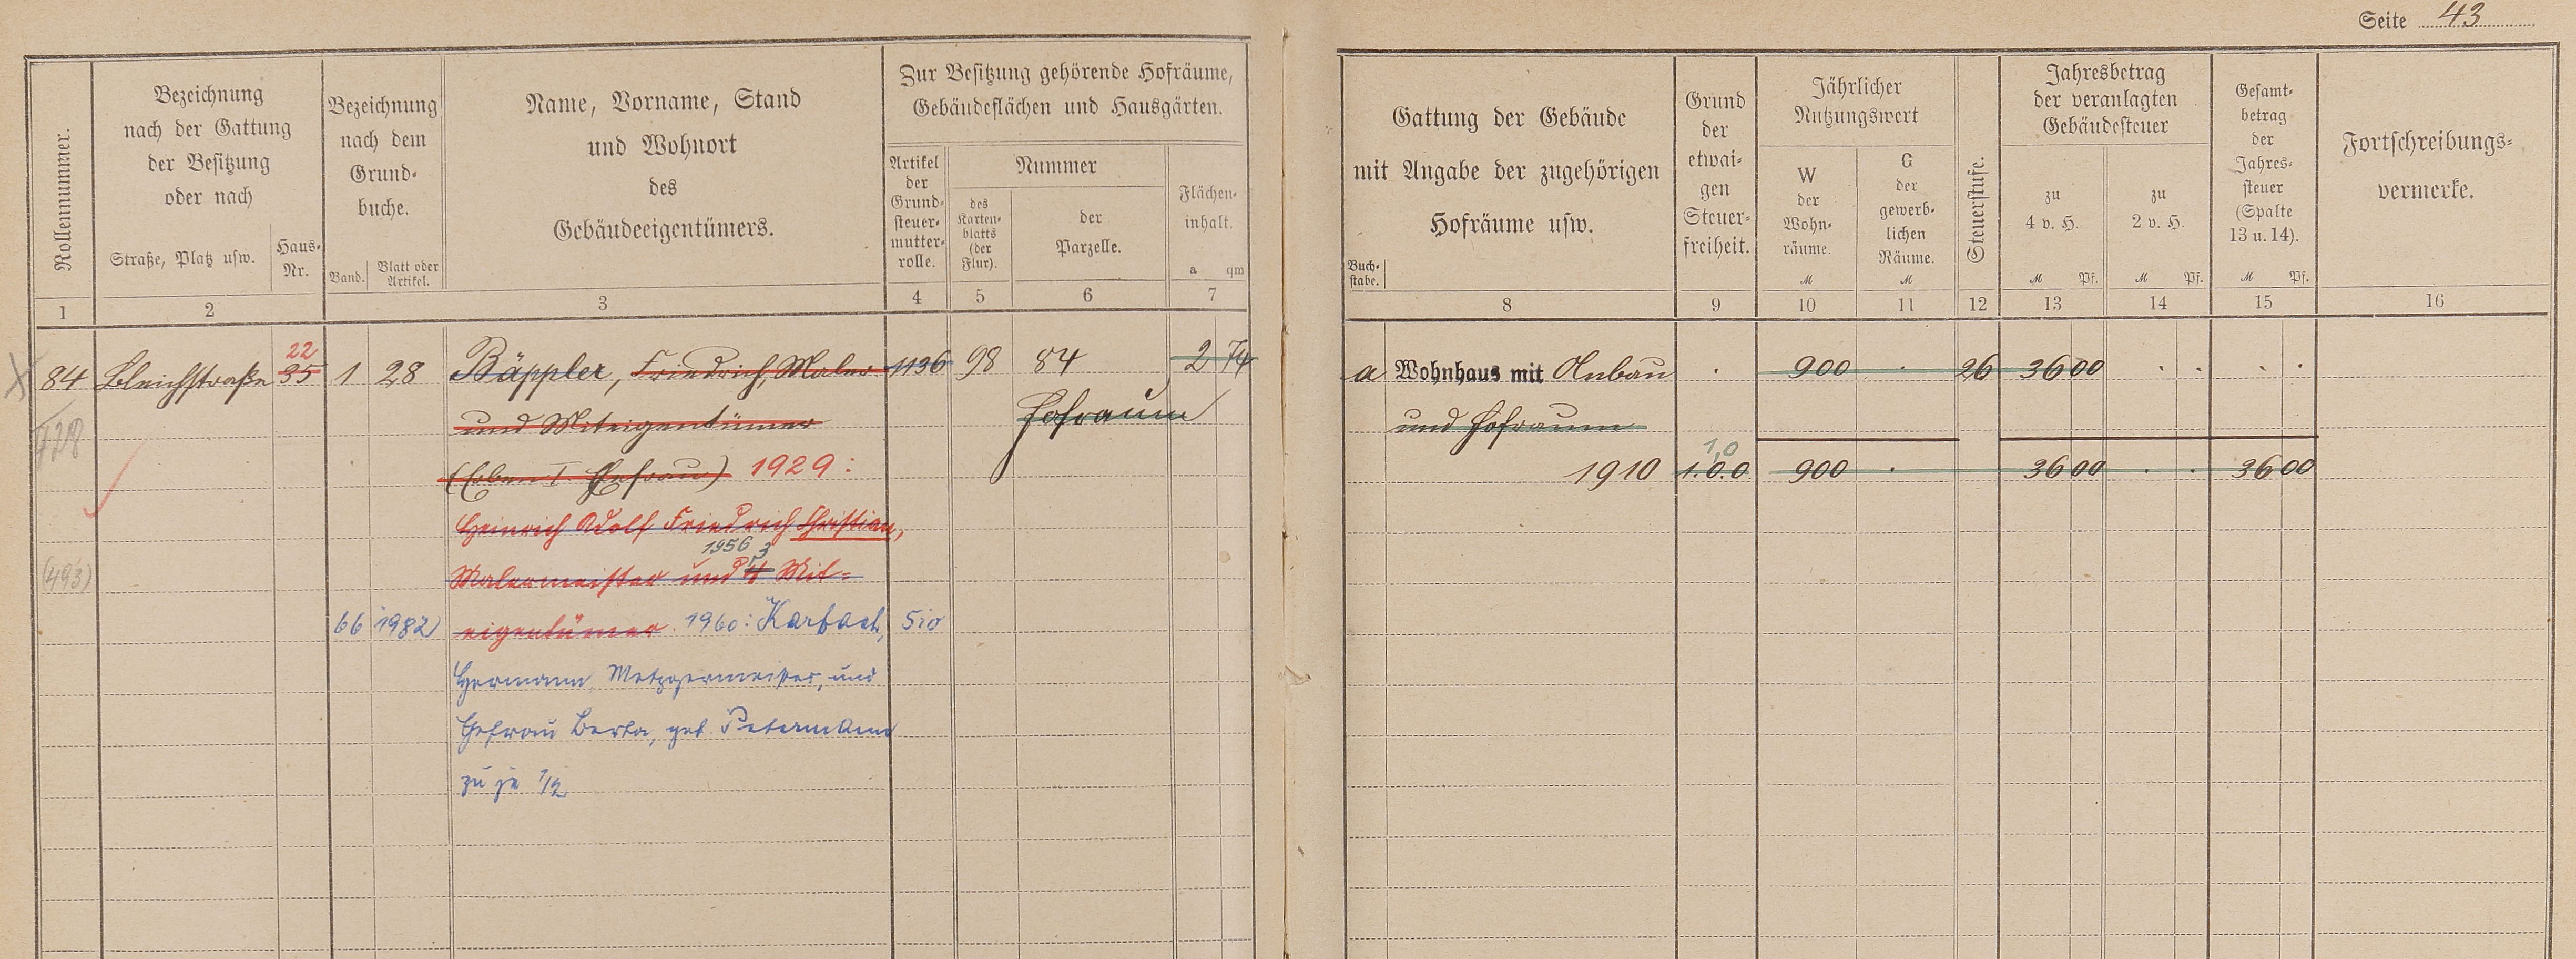 Seite 43
Rollennummer.
Bezeichnung
nach der Gattung
der Besitzung
oder nach
Straße, Platz usw.
Haus-
Nr.
Bezeichnung
nach dem
Grund-
buche.
Band.
Blatt oder
Artikel.
Name, Vorname, Stand
und Wohnort
des
Gebäudeeigentümers.
Zur Besitzung gehörende Hofräume,
Gebäudeflächen und Hausgärten.
Artikel
der
Grund-
steuer-
mutter-
rolle.
Nummer
des
Karten-
blatts
(der
Flur).
der
Parzelle.
Flächen-
inhalt.
a qm
1 2 3 4 5 6 7
84 Bleichstraße 22
35 1 28 Bäppler, Friedrich, Maler 1136 98 84 2 74
und Miteigentümer Hofraum
(Erben I. Ehefrau) 1929:
Heinrich Adolf Friedrich Christian,
1956 3
(493) Malermeister und 4 Mit-
66 1982 eigentümer. 1960: Karbach, 510
Hermann, Metzgermeister, und
Ehefrau Berta, geb. Petermann
zu je 1/2
Gattung der Gebäude
mit Angabe der zugehörigen
Hofräume usw.
Buch-
stabe.
Grund
der
etwai-
gen
Steuer-
freiheit.
Jährlicher
Nutzungswert
W
der
Wohn-
räume.
M
G
der
gewerb-
lichen
Räume.
M
Steuerstufe.
Jahresbetrag
der veranlagten
Gebäudesteuer
zu
4 v. H.
M Pf.
zu
2 v. H.
M Pf.
Gesamt-
betrag
der
Jahres-
steuer
(Spalte
13 u. 14).
M Pf.
Fortschreibungs-
vermerke.
8 9 10 11 12 13 14 15 16
a Wohnhaus mit Anbau . 900 . 26 36 00 . . . .
und Hofraum
1,0
1910 1.0.0 900 . 36 00 . . 36 00